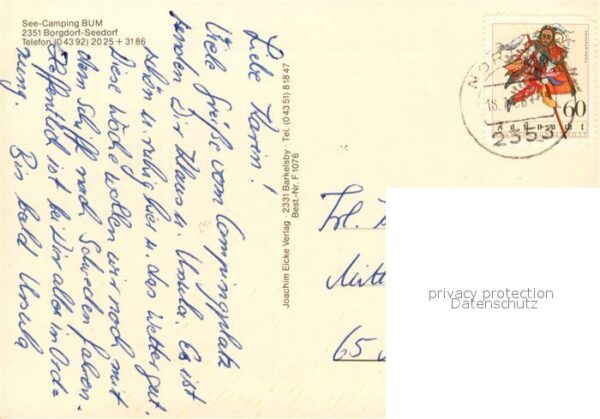 See-Camping BUM
2351 Borgdorf-Seedorf
Telefon (0 43 92) 20 25 + 31 86
Liebe Karin!
Viele Grüße vom Campingplatz
senden Dir Klaus u. Ursula. Es ist
schön u. ruhig hier u. das Wetter gut.
Diese Woche wollen wir noch mit
dem Schiff nach Schweden fahren.
Hoffentlich ist bei Dir alles in Ord-
nung.
Bis bald Ursula
Joachim Eicke Verlag · 2331 Barkelsby · Tel. (0 43 51) 8 18 47
Best.-Nr. F 1076
60
2353
Frl.
Mitt
65
privacy protection
Datenschutz